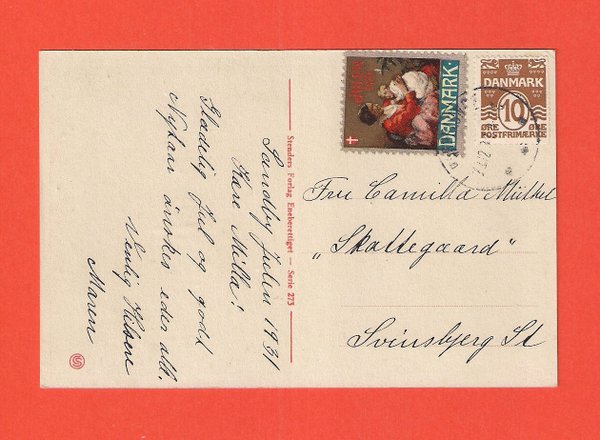 Sandby Julen 1931
Kære Milla!
Glædelig Jul og godt
Nytaar ønskes eder alle.
Venlig Hilsen
Maren
Stenders Forlag Eneberettiget — Serie 273
DANMARK
DANMARK
10
ØRE ØRE
POSTFRIMÆRKE
Fru Camilla
„Skattegaard"
Svinsbjerg St